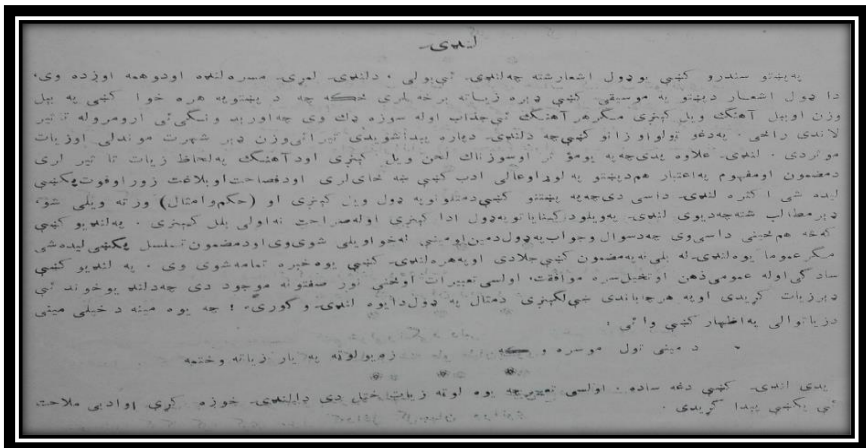 لنډۍ
په پښتو سندرو کښې یو ډول اشعار شته چه لنډۍ ئې بولی، د لنډۍ لمړۍ مسره لنډه او دوهمه اوږده وی،
دا ډول اشعار د پښتو په موسیقی کښې ډیره زیاته برخه لری ځکه چه د پښتو په هره خوا کښې په بیل
وزن او بیل آهنګ ویل کیږی مګر هر آهنګ ئې جذاب او له سوزه ډک وی چه اورېدونکی ئې
لاندی راځی، په دغو ټولو اوزانو کښې چه د لنډۍ دپاره پیدا شویدی تیرائی وزن ډېر شهرت موندلی او زیات
لنډۍ علاوه پدی چه په سوزناک لحن ویل کیږی او د آهنګ په لحاظ زیات تاثیر لری
د مضمون او مفهوم په اعتبار هم د پښتو په لوړ او عالی ادب کښې ښه ځای لری او د فصاحت او بلاغت زور او قوت پکښې
لیده شی اکثره لنډۍ داسی دی چه په پښتنو کښې د متلو په ډول ویل کیږی او (حکم و امثال) ورته ویلی شو
ډېر مطالب شته چه د یوی لنډۍ په ویلو د کنایاتو په ډول ادا کیږی او له صراحت نه اولی بلل کیږی، په لنډیو کښې
که څه هم ځینی داسی وی چه د سوال و جواب په ډول د مین او مینی له خوا ویلی شوی وی او د مضمون تسلسل پکښې لیده شی
مګر عموما یوه لنډۍ له بلی نه په مضمون کښې جلا دی او په هره لنډۍ کښې یوه خبره تمامه شوی وی، په لنډیو کښې
سادګی او له عمومی ذهن او تخیل سره موافقت، اولسی تعبیرات او ځنی نور صفتونه موجود دی چه د لنډیو خوند ئې
ډېر زیات کړیدی او په هر چا باندی ښې لګیږی د مثال په ډول دا یوه لنډۍ وګوری! چه یوه مینه د خپلی مینی
د زیاتوالی په اظهار کښې وائی:
د مینی تول موسره وکه زه یو لوته په یار زیاته وختمه
پدی لنډۍ کښې دغه ساده، اولسی تعبیر چه یوه لوته زیات ختل دی دا لنډۍ خوږه کړی او ادبی ملاحت
ئې پکښې پیدا کړیدی.